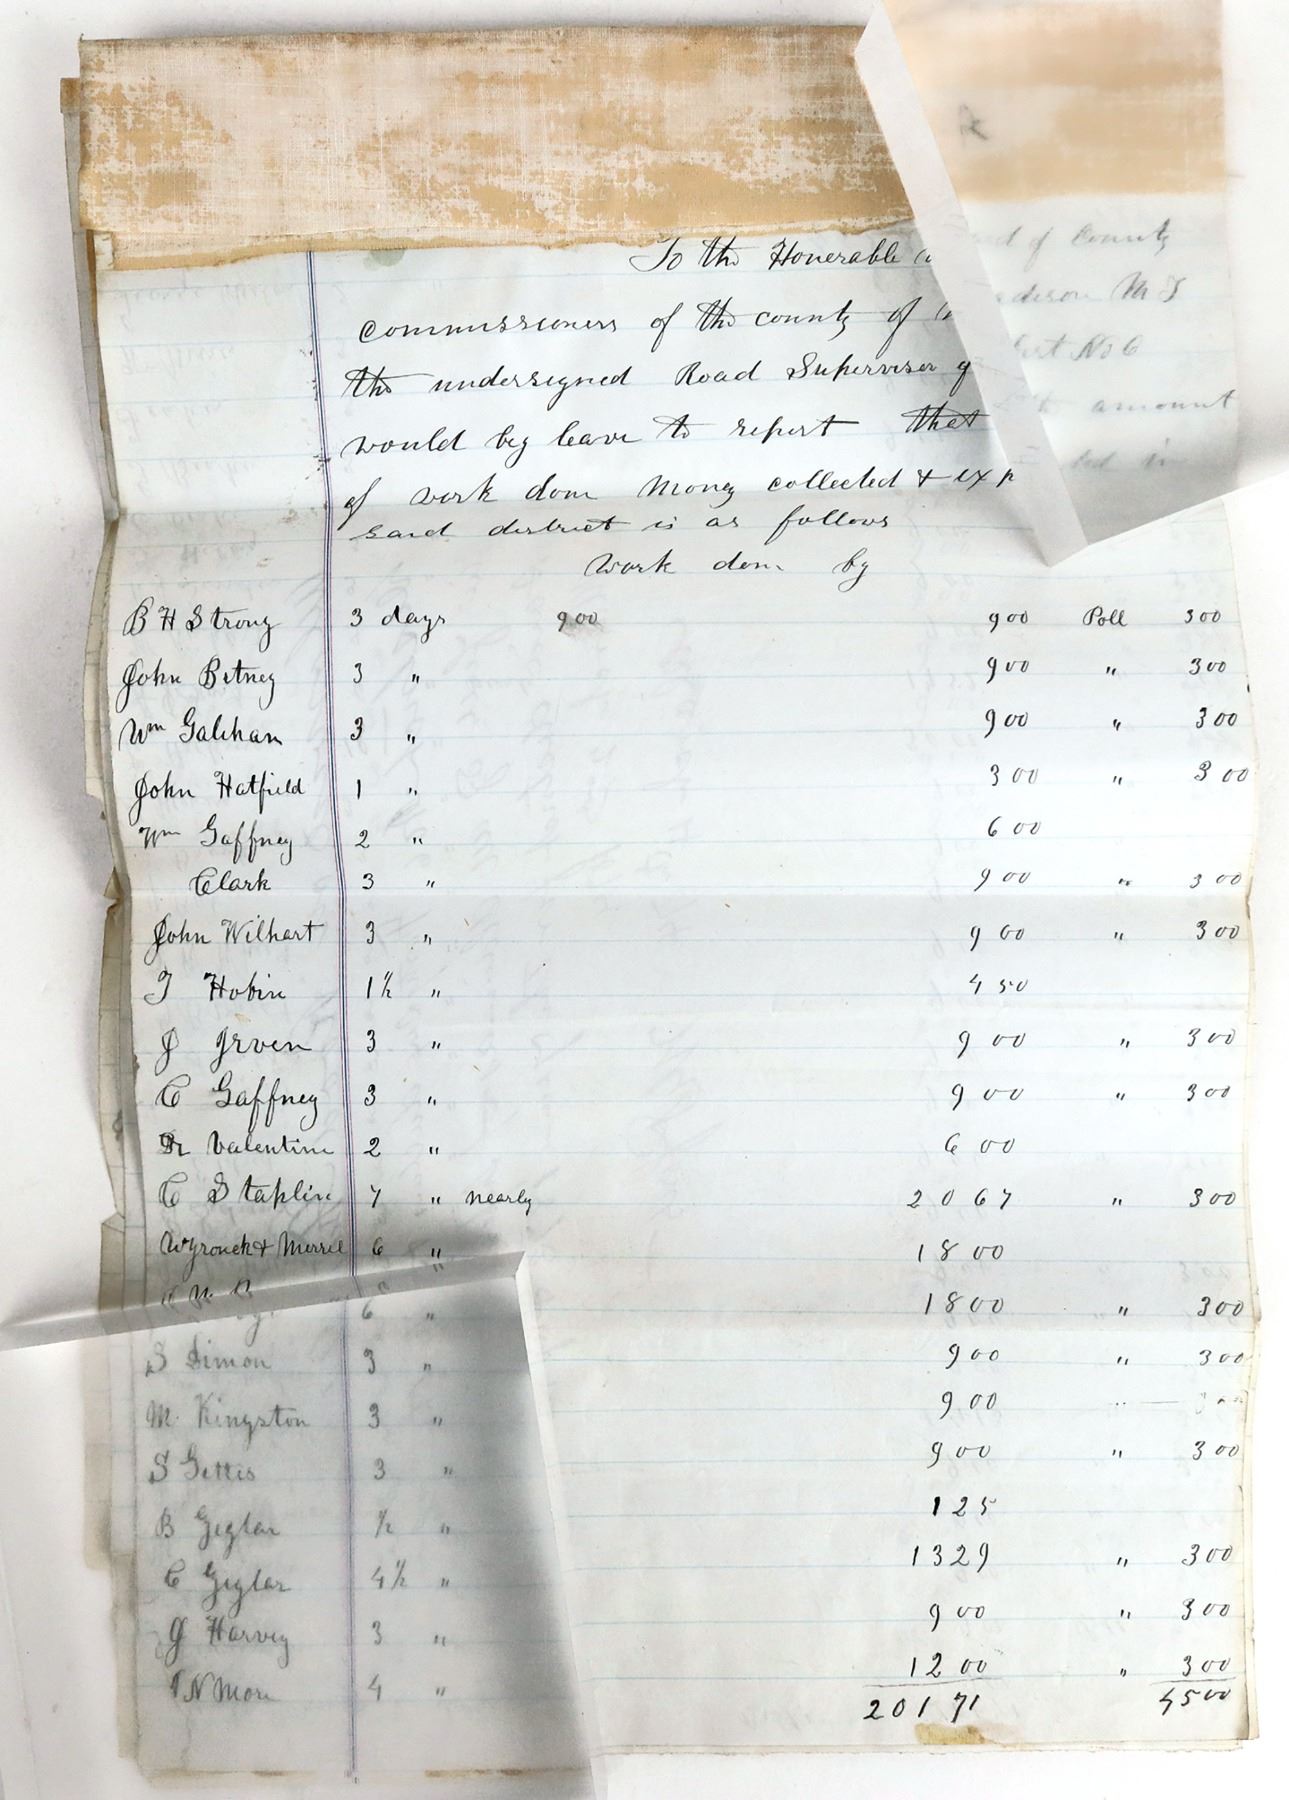 To the Honerable and of County
commissioners of the county of adison M T
the undersigned Road Supervisor No 6
would beg leave to report that amount
of work done Money collected & exp ted in
said district is as follows
Work done by
B H Strong 3 days 900 900 Poll 300
John Betney 3 " 900 " 300
Wm Galehan 3 " 900 " 300
John Hatfield 1 " 300 " 300
Wm Gaffney 2 " 600
Clark 3 " 900 " 300
John Wilhart 3 " 900 " 300
T Hobin 1½ " 450
J Irven 3 " 900 " 300
C Gaffney 3 " 900 " 300
Dr Valentine 2 " 600
C Staplin 7 " nearly 2067 " 300
Wyronck & Merrel 6 " 1800
6 " 1800 " 300
S Simon 3 " 900 " 300
M Kingston 3 " 900
S Gettis 3 " 900 " 300
B Zeglar ½ " 125
C Zeglar 4½ " 1329 " 300
J Harvey 3 " 900 " 300
N More 4 " 1200 " 300
20171 4500